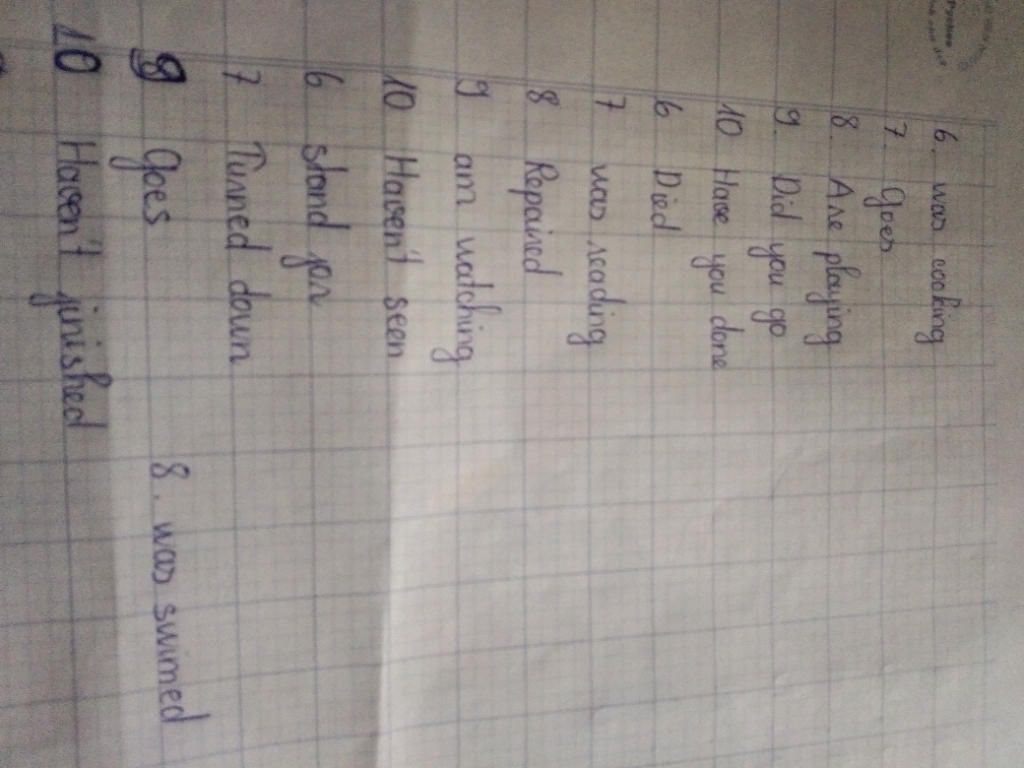 6. was cooking
7. Goes
8. Are playing
9. Did you go
10. Have you done
6 Died
7 was reading
8 Repained
9 am watching
10 Haven't seen
6 stand for
7 Turned down
9 Goes 8. was swimed
10 Haven't finished